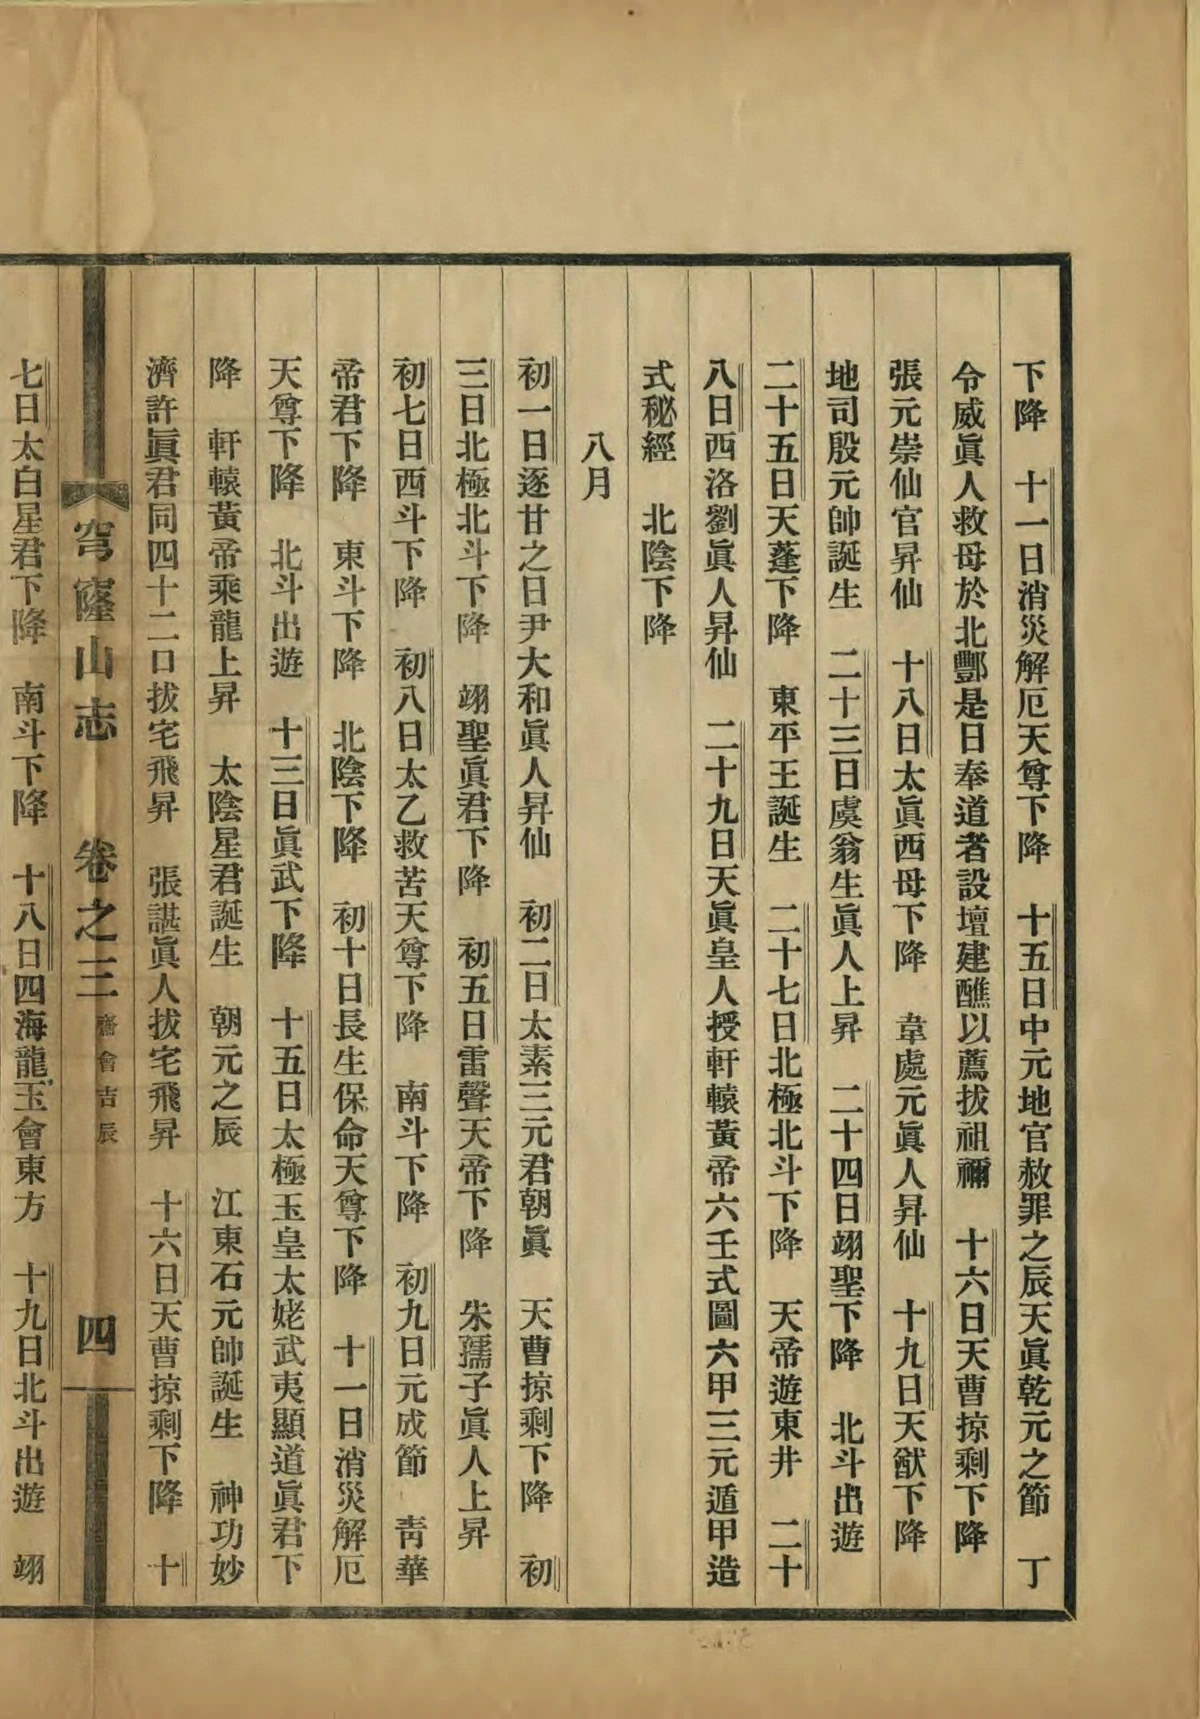 下降　十一日消災解厄天尊下降　十五日中元地官赦罪之辰天眞乾元之節　丁
令威眞人救母於北酆是日奉道者設壇建醮以薦拔祖禰　十六日天曹掠剩下降
張元崇仙官昇仙　十八日太眞西母下降　韋處元眞人昇仙　十九日天猷下降
地司殷元帥誕生　二十三日虞翁生眞人上昇　二十四日翊聖下降　北斗出遊
二十五日天蓬下降　東平王誕生　二十七日北極北斗下降　天帝遊東井　二十
八日西洛劉眞人昇仙　二十九日天眞皇人授軒轅黃帝六壬式圖六甲三元遁甲造
式秘經　北陰下降
八月
初一日逐甘之日尹大和眞人昇仙　初二日太素三元君朝眞　天曹掠剩下降　初
三日北極北斗下降　翊聖眞君下降　初五日雷聲天帝下降　朱孺子眞人上昇
初七日西斗下降　初八日太乙救苦天尊下降　南斗下降　初九日元成節　靑華
帝君下降　東斗下降　北陰下降　初十日長生保命天尊下降　十一日消災解厄
天尊下降　北斗出遊　十三日眞武下降　十五日太極玉皇太姥武夷顯道眞君下
降　軒轅黃帝乘龍上昇　太陰星君誕生　朝元之辰　江東石元帥誕生　神功妙
濟許眞君同四十二口拔宅飛昇　張諶眞人拔宅飛昇　十六日天曹掠剩下降　十
穹窿山志　卷之三　齋會吉辰　四
七日太白星君下降　南斗下降　十八日四海龍王會東方　十九日北斗出遊　翊